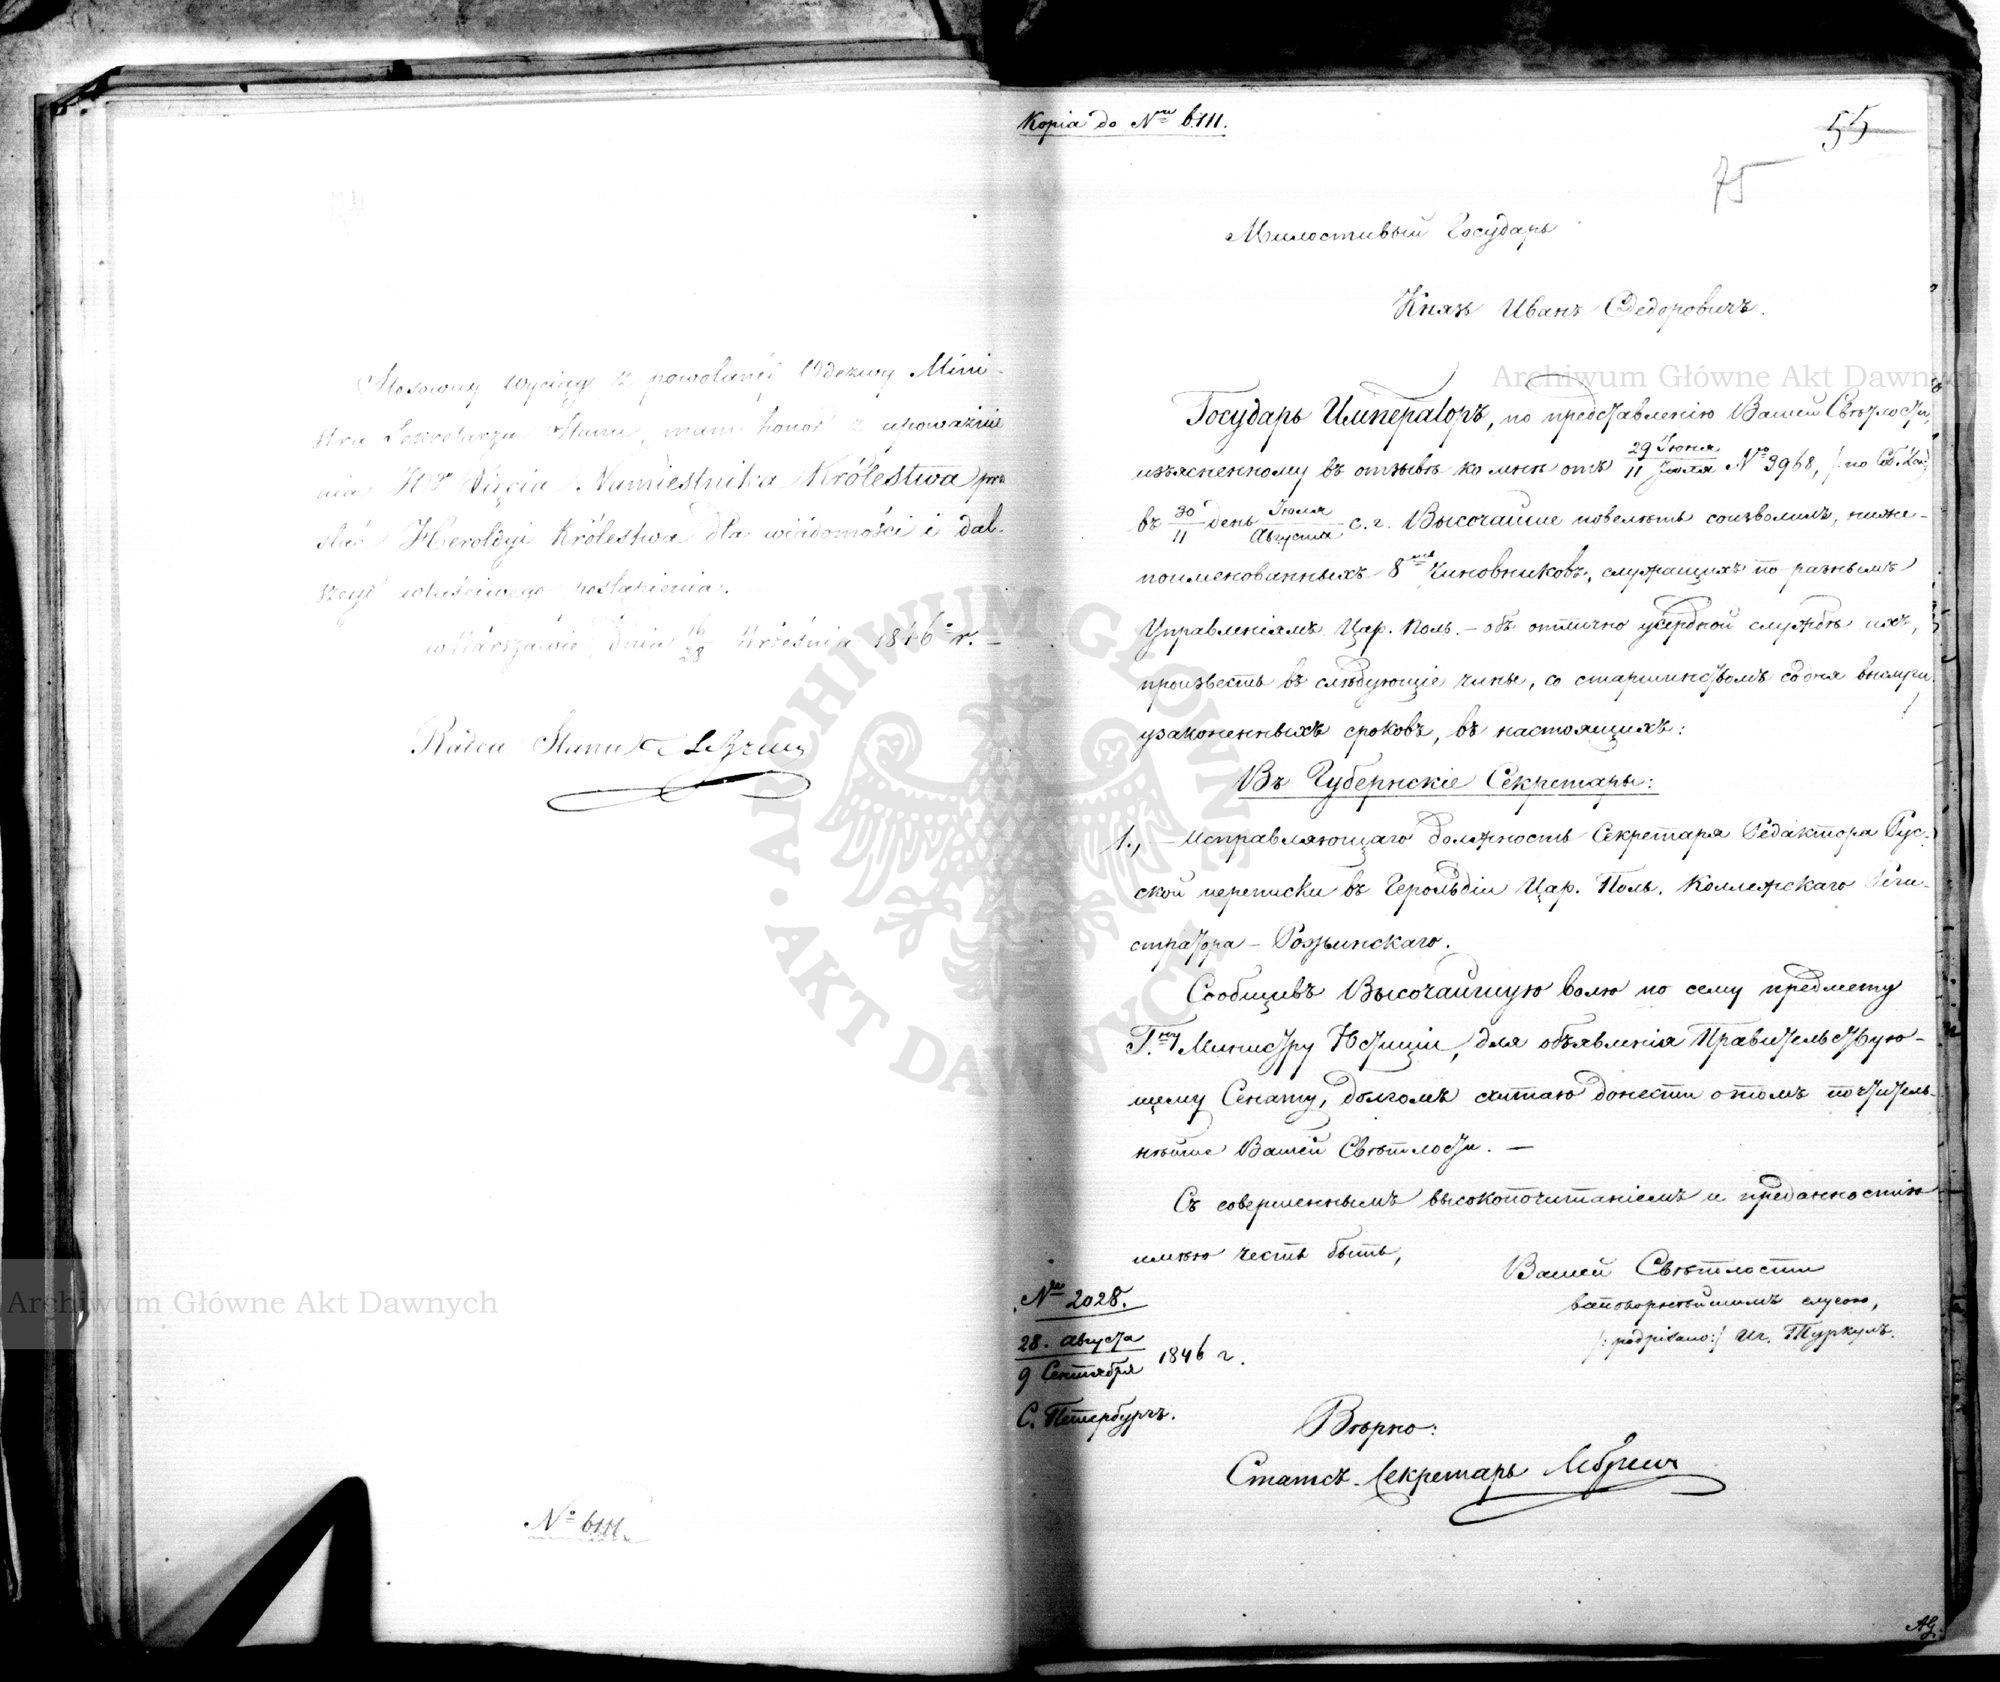 Stosowny wyciąg z powołanéj Odezwy Mini-
stra Sekretarza Stanu, mam honor z upoważnie
nia JOº Xięcia Namiestnika Królestwa prze
słać Heroldyi Królestwa dla wiadomości i dal-
szego właściwego postąpienia.
w Warszawie, dnia 16/28 Września 1846º r. –
Radca Stanu
Nº 6111
Kopia do Nru 6111.
55
75
Милостивый Государь
Князь Иванъ Ѳедоровичъ.
Государь Императоръ, по представленію Вашей Свѣтлости,
изъясненному въ отзывѣ ко мнѣ отъ 29 Іюня/11 Іюля № 3968,
въ 30/11 день Іюля/Августа с. г. Высочайше повелѣть соизволилъ, ниже-
поименованныхъ 8ми чиновниковъ, служащихъ по разнымъ
Управленіямъ Цар. Поль. – объ отлично усердной службѣ ихъ,
произвесть въ слѣдующіе чины, со старшинствомъ со дня выслуги
узаконенныхъ сроковъ, въ настоящихъ:
Въ Губернскіе Секретари:
1., – Исправляющаго должность Секретаря Редактора Рус-
ской переписки въ Герольдіи Цар. Поль. Коллежскаго Реги-
стратора –
Сообщивъ Высочайшую волю по сему предмету
Г.ну Министру Юстиціи, для объявленія Правительствую-
щему Сенату, долгомъ считаю донести о томъ почтитель-
нѣйше Вашей Свѣтлости. –
Съ совершеннымъ высокопочитаніемъ и преданностію
имѣю честь быть,
Вашей Свѣтлости
слугою,
/:подписано:/ Иг. Туркулъ.
№ 2028.
28. Августа/9 Сентября 1846 г.
С. Петербургъ.
Вѣрно:
Статсъ-Секретарь
AG.
Archiwum Główne Akt Dawnych
Archiwum Główne Akt Dawnych
ARCHIWUM GŁÓWNE · AKT DAWNYCH ·